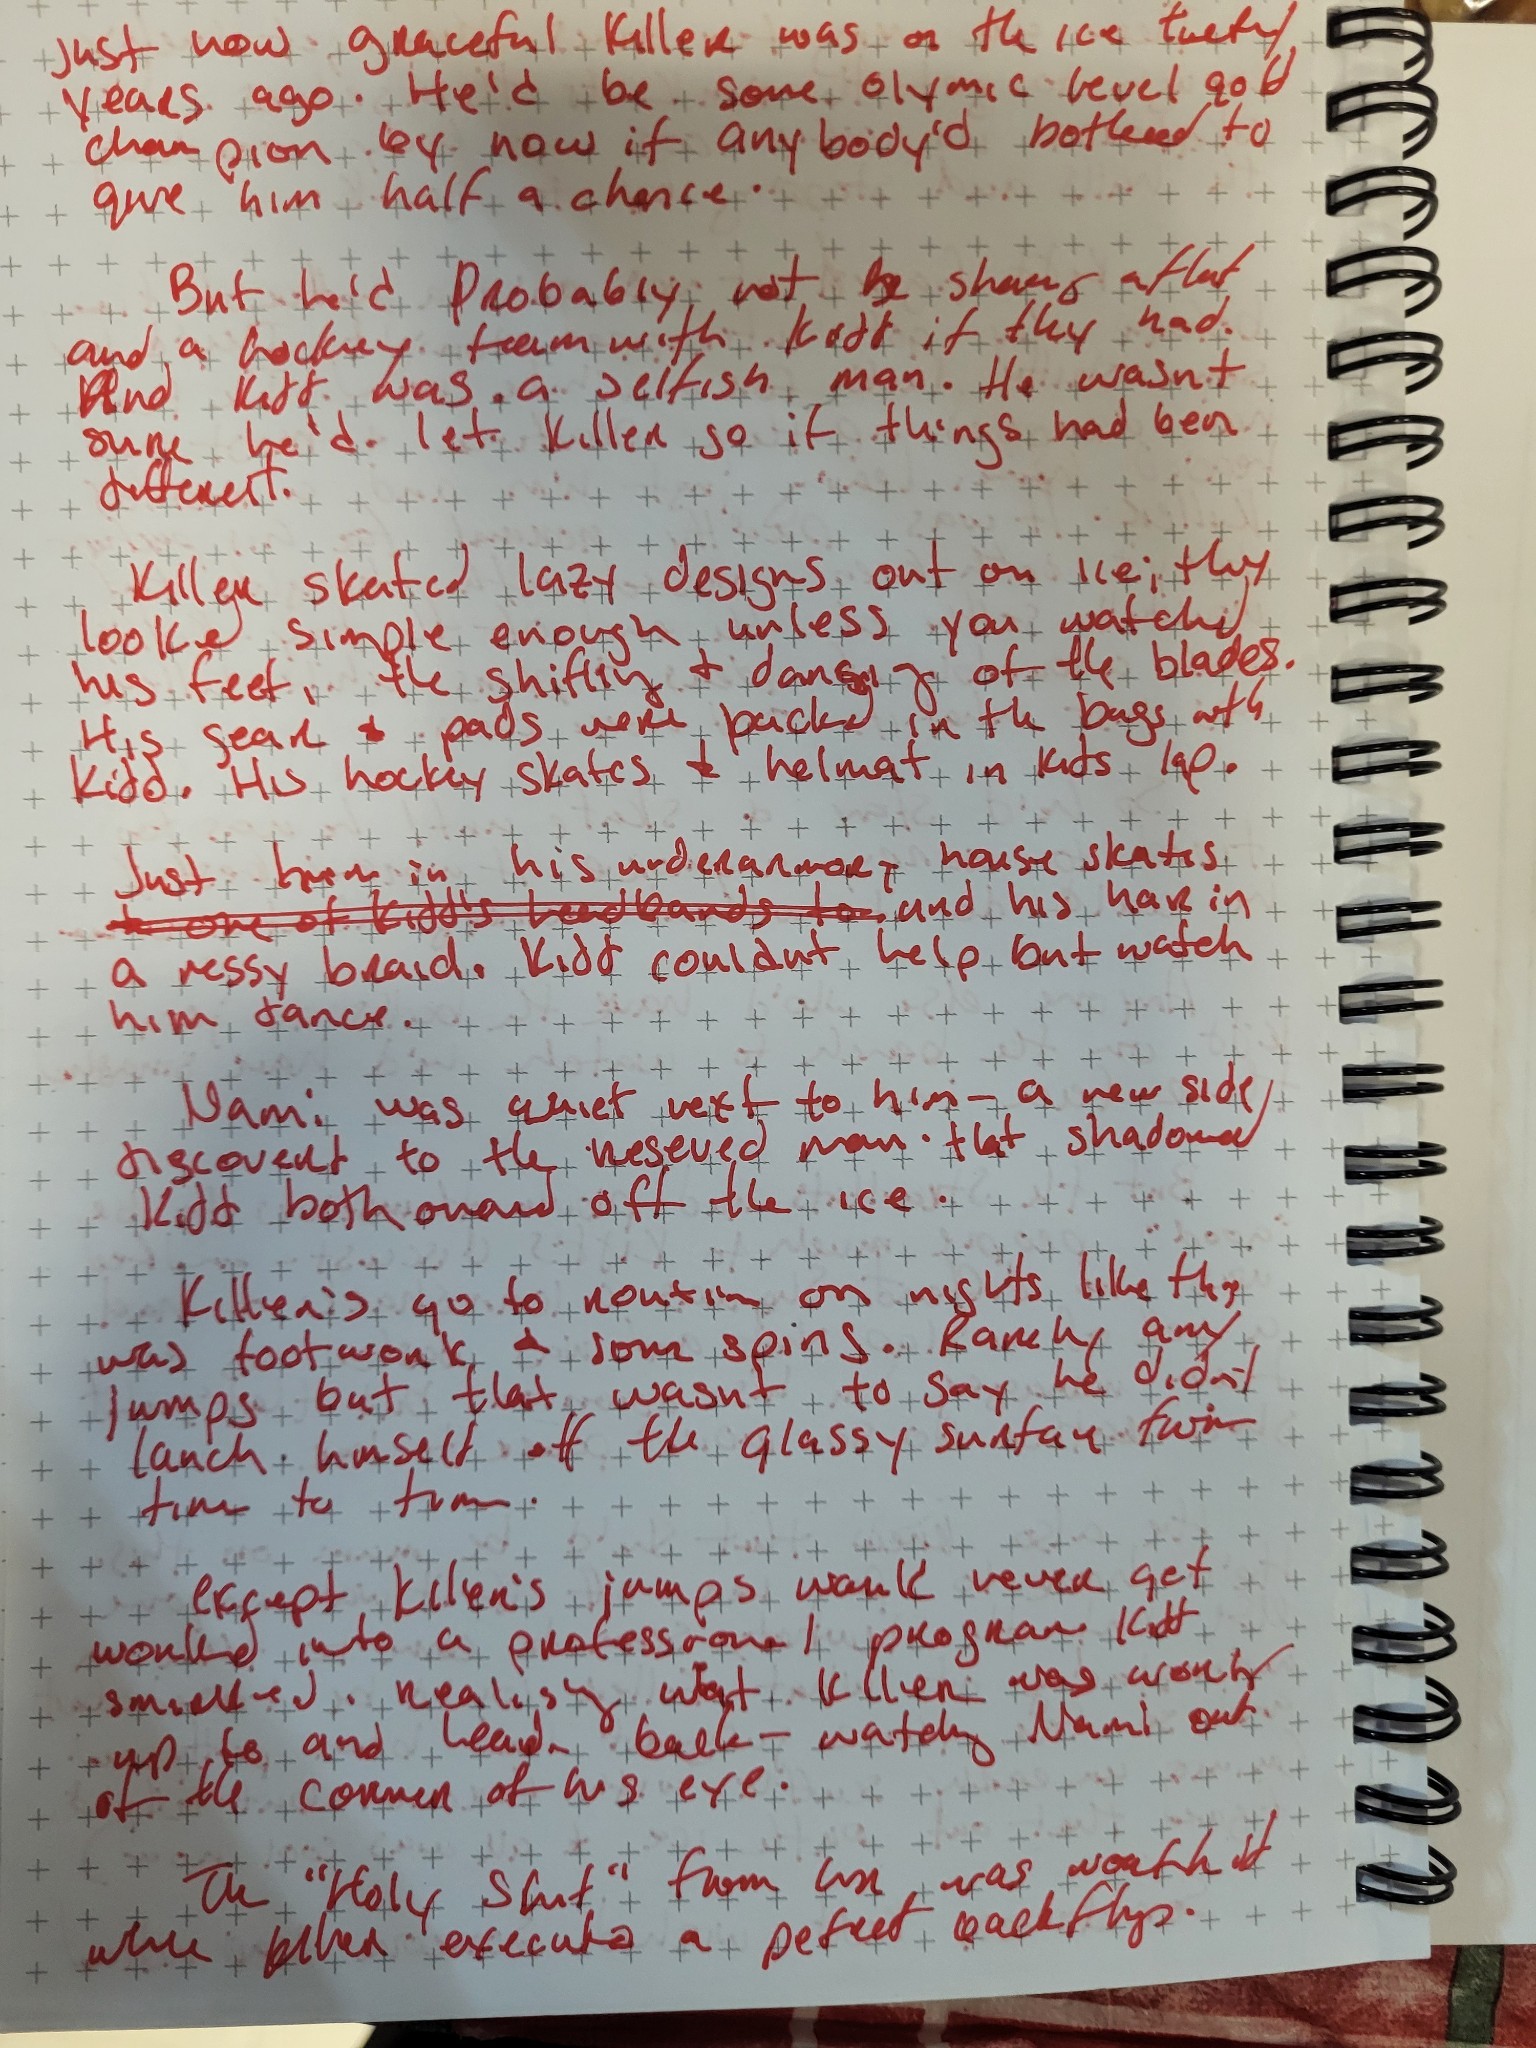 just how graceful Killer was on the ice twenty
years ago. He'd be some olymic level gold
champion by now if anybody'd bothered to
give him half a chance.
But he'd Probably not be sharing a flat
and a hockey team with Kidd if they had.
And Kidd was a selfish man. He wasnt
sure he'd let Killer go if things had been
different.
Killer skated lazy designs out on ice; they
looked simple enough unless you watched
his feet, the shifting & dancing of the blades.
His gear & pads were packed in the bags with
Kidd. His hockey skates & helmat in Kids lap.
Just him in his underarmor, house skates
& one of Kidd's headbands to and his hair in
a messy braid. Kidd couldnt help but watch
him dance.
Nami was quiet next to him - a new side
discovered to the reserved man that shadowed
Kidd both on and off the ice.
Killer's go to routine on nights like this
was footwork & some spins. Rarely any
jumps but that wasnt to say he didn't
lanch himself off the glassy surface from
time to time.
Except Killer's jumps would never get
worked into a professional program Kidd
smirked. realising what Killer was working
up to and leaned back - watching Nami out
of the corner of his eye.
The "Holy Shit" from her was worth it
when Killer executed a pefect backflip.